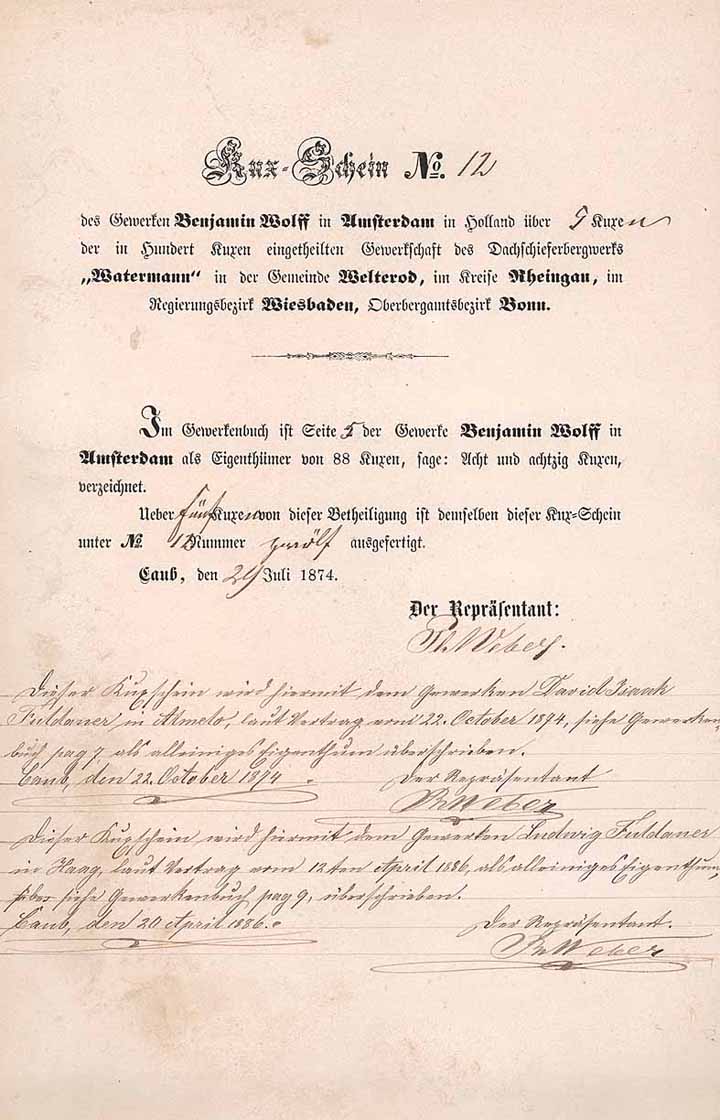 Kux-Schein No. 12
des Gewerken Benjamin Wolff in Amsterdam in Holland über 5 Kuxen
der in Hundert Kuxen eingetheilten Gewerkschaft des Dachschieferbergwerks
„Watermann“ in der Gemeinde Welterod, im Kreise Rheingau, im
Regierungsbezirk Wiesbaden, Oberbergamtsbezirk Bonn.
Im Gewerkenbuch ist Seite 5 der Gewerke Benjamin Wolff in
Amsterdam als Eigenthümer von 88 Kuxen, sage: Acht und achtzig Kuxen,
verzeichnet.
Ueber fünf Kuxen von dieser Betheiligung ist demselben dieser Kux-Schein
unter No. 12 Nummer zwölf ausgefertigt.
Caub, den Juli 1874.
Der Repräsentant:
Ph. Weber.
Dieser Kuxschein wird hiermit dem Gewerken David Isaak
Fuldauer in Almelo, laut Vertrag vom 22. October 1874, siehe Gewerken-
buch pag 7 als alleiniges Eigenthum überschrieben.
Caub, den 22. October 1874.
Der Repräsentant
Ph Weber
Dieser Kuxschein wird hiermit dem Gewerken Ludwig Fuldauer
in Haag, laut Vertrag vom 12ten April 1886, als alleiniges Eigenthum,
siehe Gewerkenbuch pag 9, überschrieben.
Caub, den 20 April 1886.
Der Repräsentant.
Ph Weber